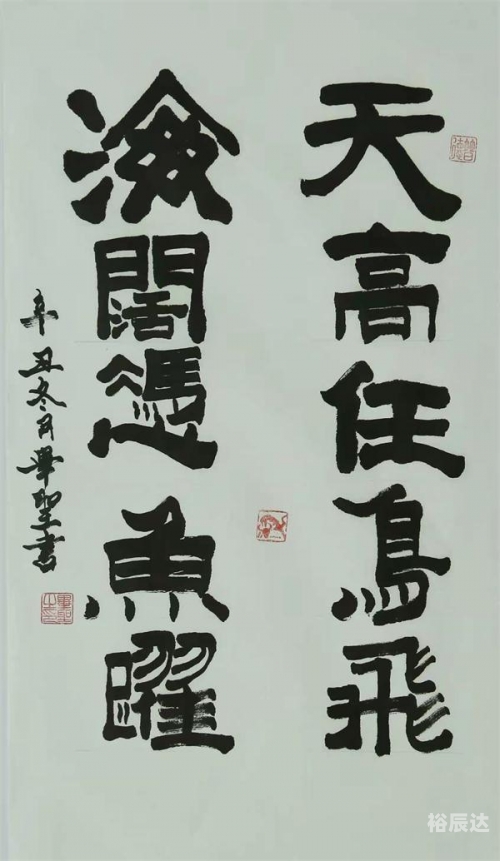 天高任鳥飛
海闊憑魚躍
辛丑冬月畢聖書
裕辰达